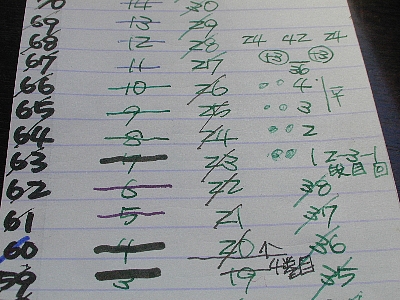 70 14 30
69 13 29
68 12 28 24 42 24
67 11 27 +3 36 +3
66 10 26 4 平
65 9 25 3
64 8 24 2
63 7 23 1 2-3-1
段目回
62 6 22 38
61 5 21 37
60 4 20 36
59 3 19 4段目 35